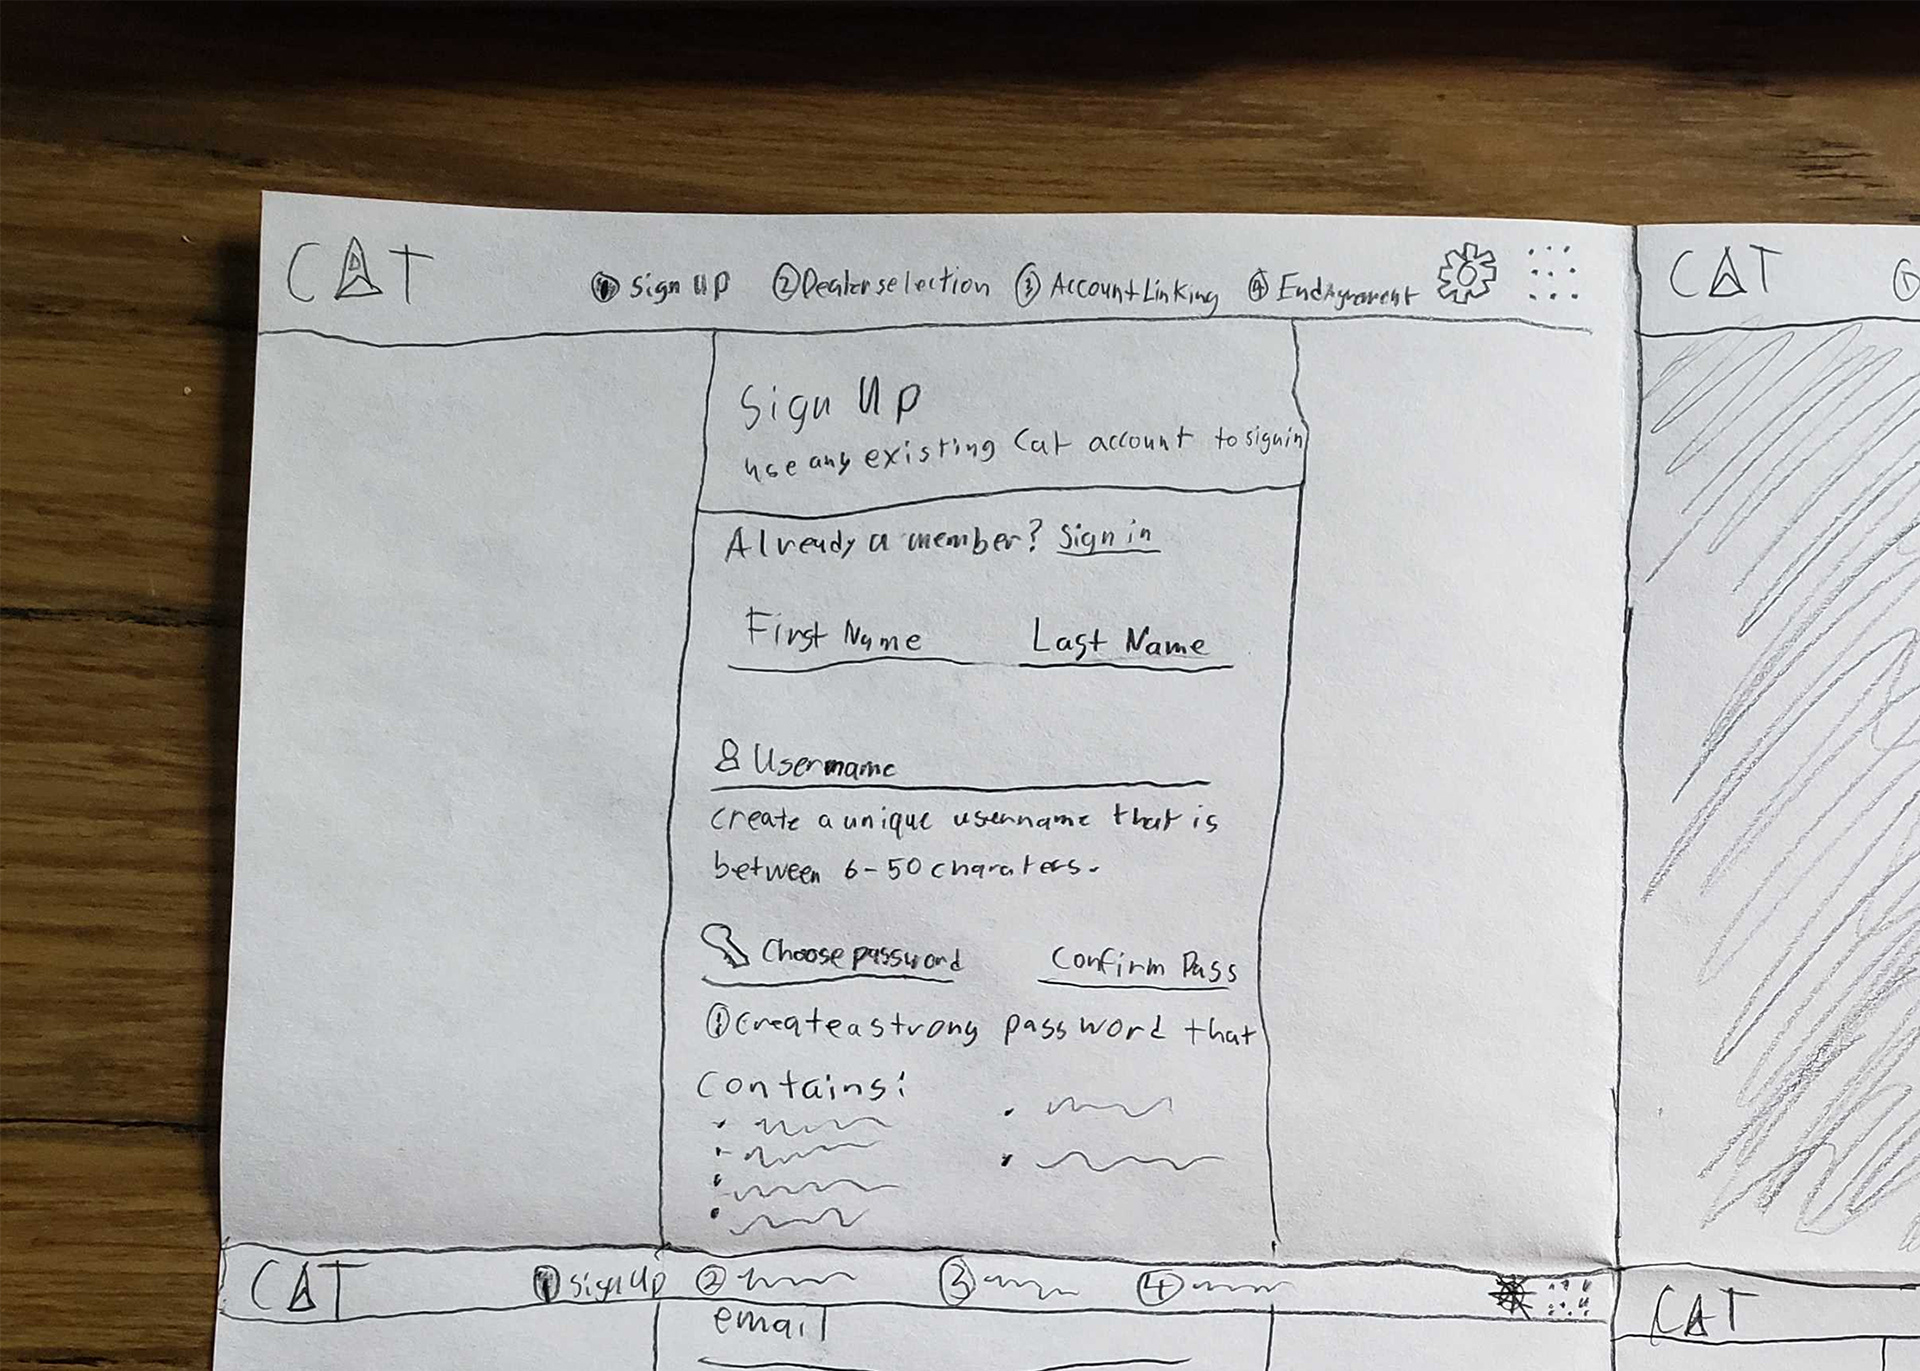 CAT
1 Sign Up 2 Dealer selection 3 Account Linking 4 End Agreement
CAT
Sign Up
use any existing Cat account to sign in
Already a member? Sign in
First Name Last Name
Username
create a unique username that is
between 6-50 charaters.
Choose password Confirm Pass
Create a strong password that
Contains:
CAT 1 Sign Up 2 3 4
email
CAT